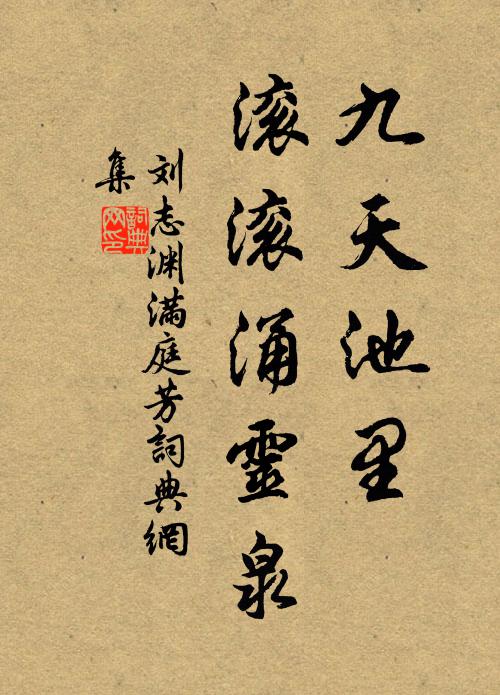 九天池里
滚滚涌靈泉
刘志渊满庭芳詞典網
集
詞典网印